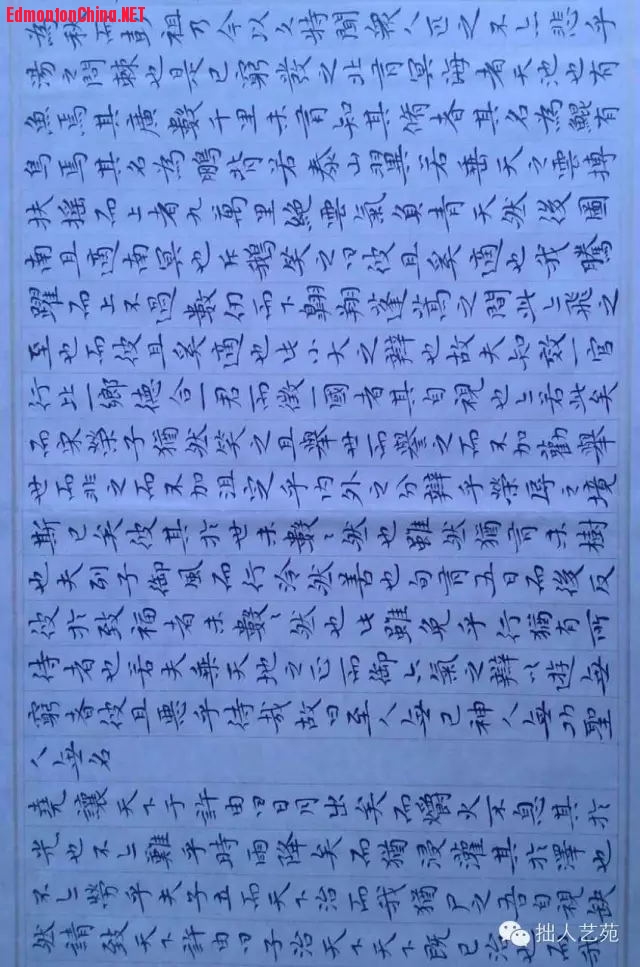 EdmontonChina.NET
為秋而彭祖乃今以久特聞眾人匹之不亦悲乎
湯之問棘也是已窮發之北有冥海者天池也有
魚焉其廣數千里未有知其脩者其名為鯤有
鳥焉其名為鵬背若泰山翼若垂天之雲摶
扶搖而上者九萬里絕雲氣負青天然後圖
南且適南冥也斥鴳笑之曰彼且奚適也我騰
躍而上不過數仞而下翱翔蓬蒿之間此亦飛之
至也而彼且奚適也此小大之辯也故夫知效一官
行比一鄉德合一君而徵一國者其自視也亦若此矣
而宋榮子猶然笑之且舉世而譽之而不加勸舉
世而非之而不加沮定乎內外之分辯乎榮辱之境
斯已矣彼其於世未數〻然也雖然猶有未樹
也夫列子御風而行泠然善也旬有五日而後反
彼於致福者未數〻然也此雖免乎行猶有所
待者也若夫乘天地之正而御六氣之辯以遊無
窮者彼且惡乎待哉故曰至人無己神人無功聖
人無名
堯讓天下于許由曰日月出矣而爝火不息其於
光也不亦難乎時雨降矣而猶浸灌其於澤也
不亦勞乎夫子立而天下治而我猶尸之吾自視缺
然請致天下許由曰子治天下天下既已治也而我
拙人艺苑